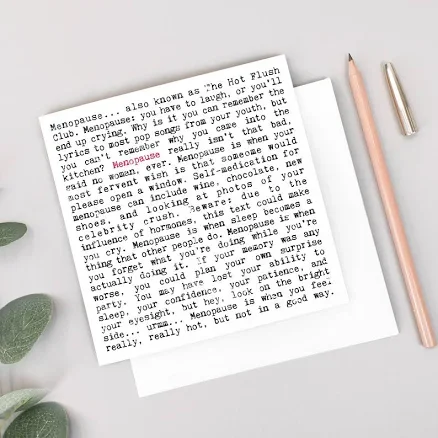 Menopause... also known as The Hot Flush
Club. Menopause: you have to laugh, or you'll
end up crying. Why is it you can remember the
lyrics to most pop songs from your youth, but
you can't remember why you came into the
kitchen? Menopause really isn't that bad,
said no woman, ever. Menopause is when your
most fervent wish is that someone would
please open a window. Self-medication for
menopause can include wine, chocolate, new
shoes, and looking at photos of your
celebrity crush. Beware: due to the
influence of hormones, this text could make
you cry. Menopause is when sleep becomes a
thing that other people do. Menopause is when
you forget what you're doing while you're
actually doing it. If your memory was any
worse, you could plan your own surprise
party. You may have lost your ability to
sleep, your confidence, your patience, and
your eyesight, but hey, look on the bright
side... urmm... Menopause is when you feel
really, really hot, but not in a good way.